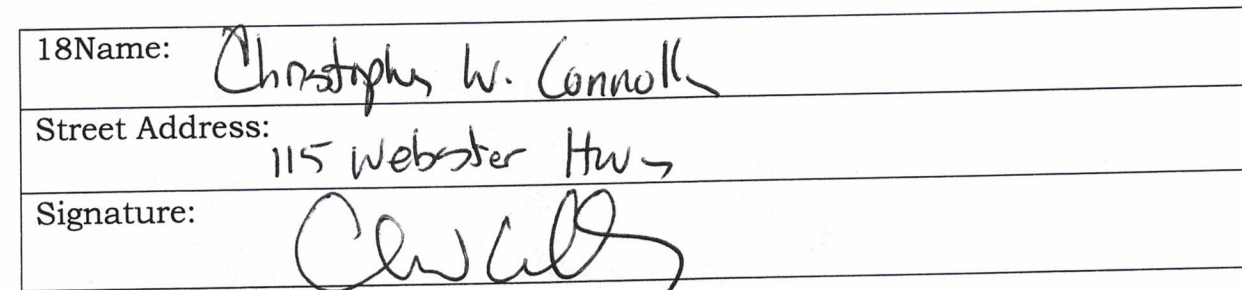 18Name: Christopher W. Connolly
Street Address: 115 Webster Hwy
Signature: